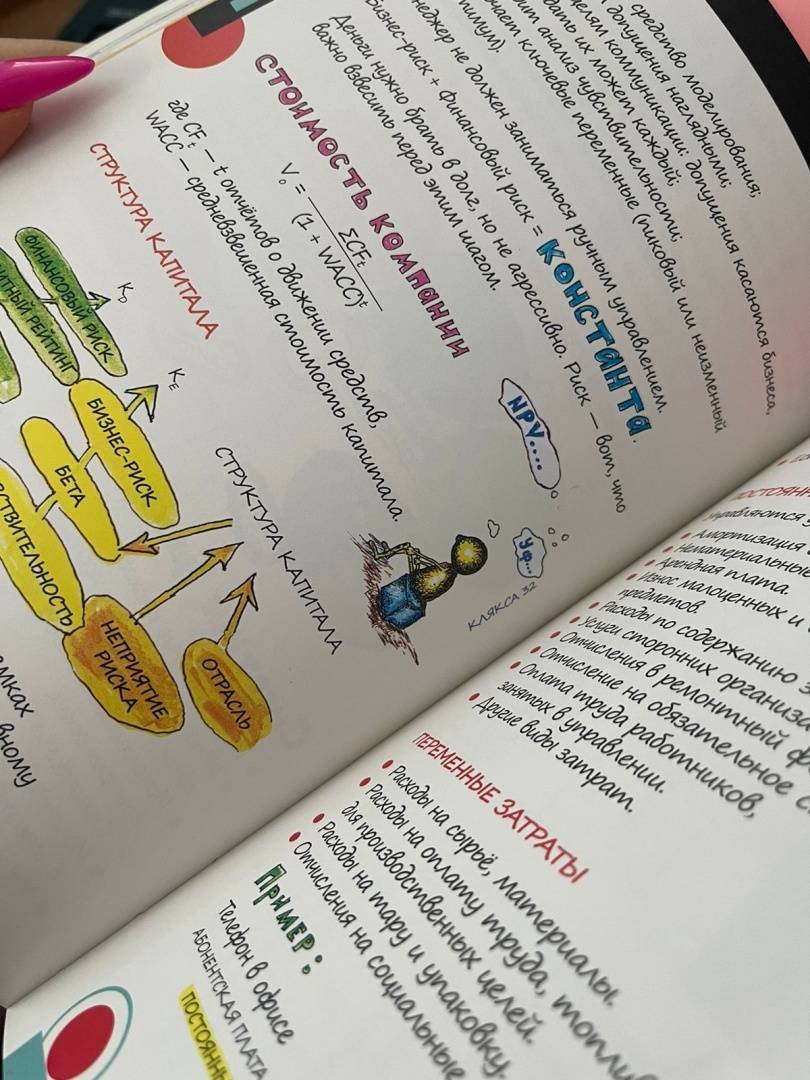 средство моделирования;
допущения наглядными;
целям коммуникации: допущения касаются бизнеса,
дать их может каждый;
анализ чувствительности;
ключевые переменные (пиковый или неизменный
тимум).
неджер не должен заниматься ручным управлением.
Бизнес-риск + финансовый риск = КОНСТАНТА.
Деньги нужно брать в долг, но не агрессивно. Риск — вот, что
важно взвесить перед этим шагом.
СТОИМОСТЬ КОМПАНИИ
V₀ = ΣCFₜ / (1 + WACC)ᵗ
где CFₜ — t отчётов о движении средств,
WACC — средневзвешенная стоимость капитала.
NPV....
Уф...
КЛЯКСА 32
СТРУКТУРА КАПИТАЛА
СТРУКТУРА КАПИТАЛА
K_D
K_E
ФИНАНСОВЫЙ РИСК
РЕЙТИНГ
БИЗНЕС-РИСК
БЕТА
СТВИТЕЛЬНОСТЬ
НЕПРИЯТИЕ
РИСКА
ОТРАСЛЬ
мках
вному
ПОСТОЯНН
Управляются
• Амортизация
• Нематериальные
• Арендная плата.
• Износ малоценных и
предметов.
• Расходы по содержанию
• Услуги сторонних организа
• Отчисления в ремонтный ф
• Отчисление на обязательное с
• Оплата труда работников,
занятых в управлении.
• Другие виды затрат.
ПЕРЕМЕННЫЕ ЗАТРАТЫ
• Расходы на сырьё, материалы.
• Расходы на оплату труда, топлив
для производственных целей.
• Расходы на тару и упаковку.
• Отчисления на социальные
Пример:
Телефон в офисе
АБОНЕНТСКАЯ ПЛАТА
ПОСТОЯНН